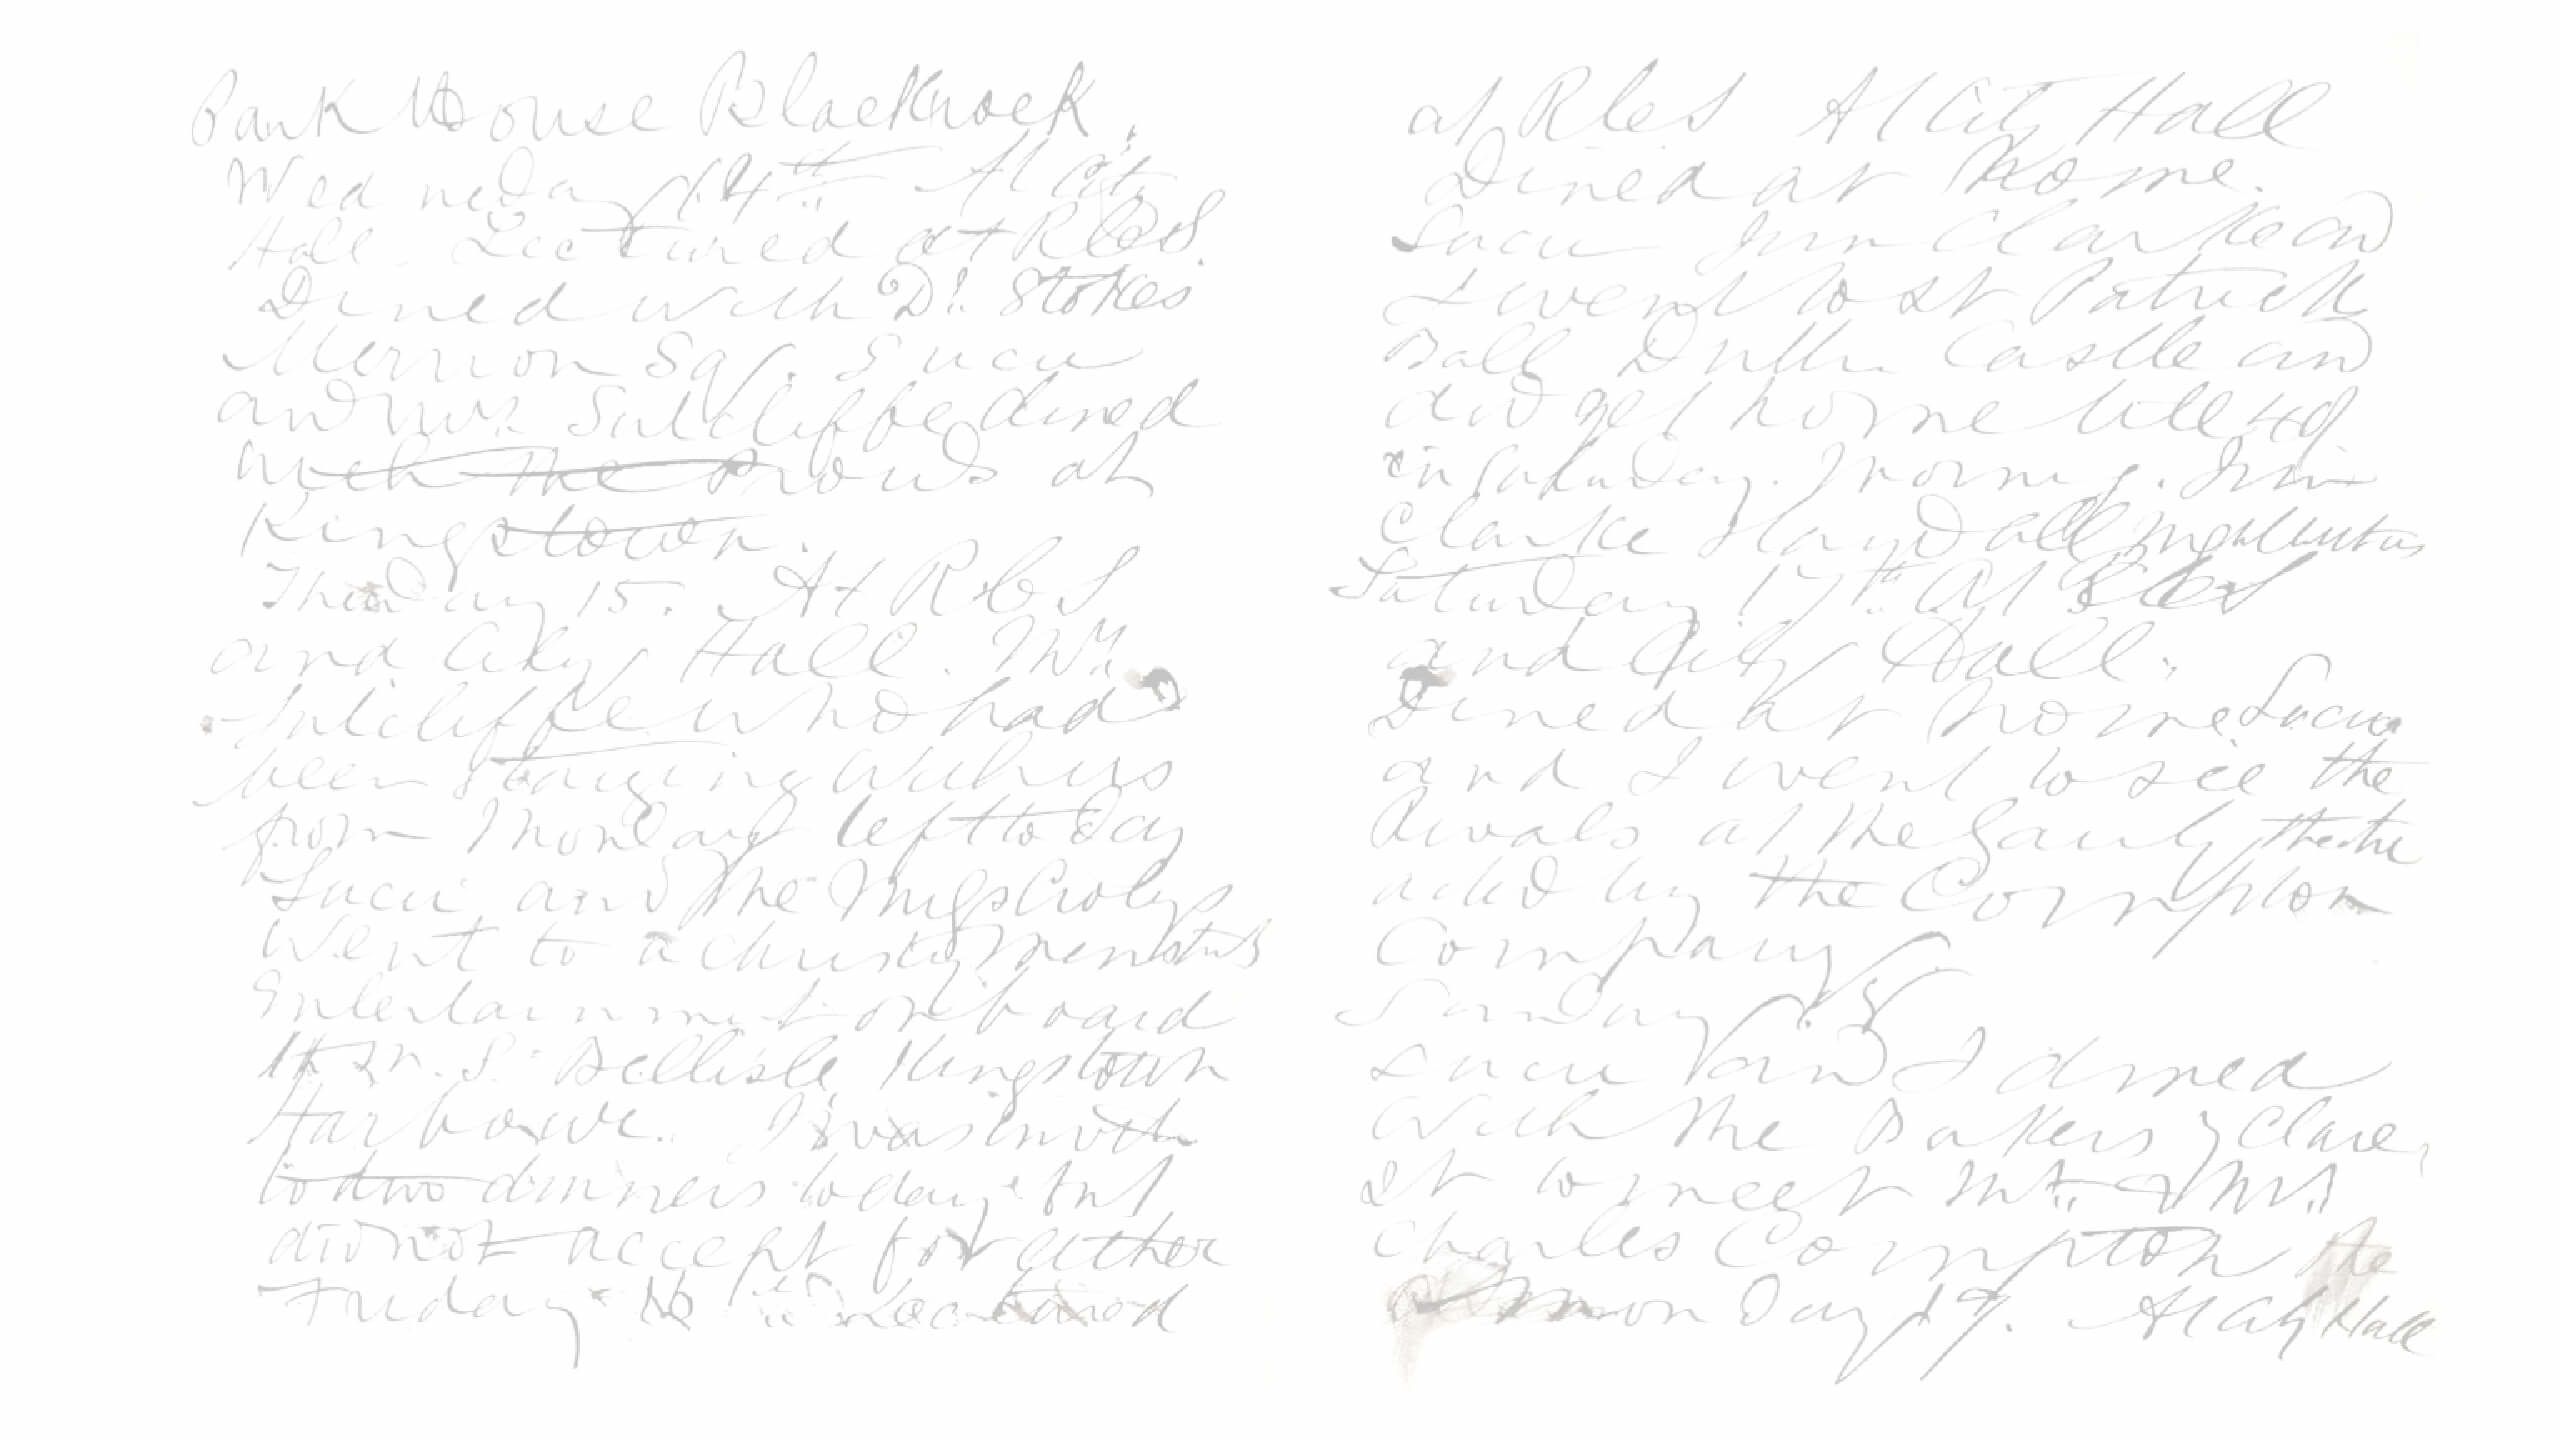 Park House Blackrock.
Wedneday 14th At City
Hall. Lectured at RCS.
Dined with Dr. Stokes
Merrion Sq. Lucu
and Mrs Sutcliffe dined
with the at
Kingstown.
Thurday 15. At RCS
and City Hall. Mrs
Sutcliffe who had
been staying with us
from Monday left to day
Lucu and the
went to a christy menstrels
Entertainment on board
H.M.S. Bellisle Kingstown
Harbour. I was
to two dinners today but
did not accept for either
Friday 16th Lectured
at RCS At City Hall
Dined at home.
Lucu Jim Clarke and
I went to St Patrick
Ball Dublin Castle and
did get home till 4 of
Saturday. Morning. Jim
Clarke Stayd all night with us
Saturday 17th At RCS
and City Hall.
Dined at home Lucu
and I went to see the
Rivals at the Gaiety theatre
acted by the Compton
Company
Sunday 18
Lucu and I dined
with the Bakers Clare
St to meet Mr & Mrs
Charles Compton the
Monday 19. At City Hall